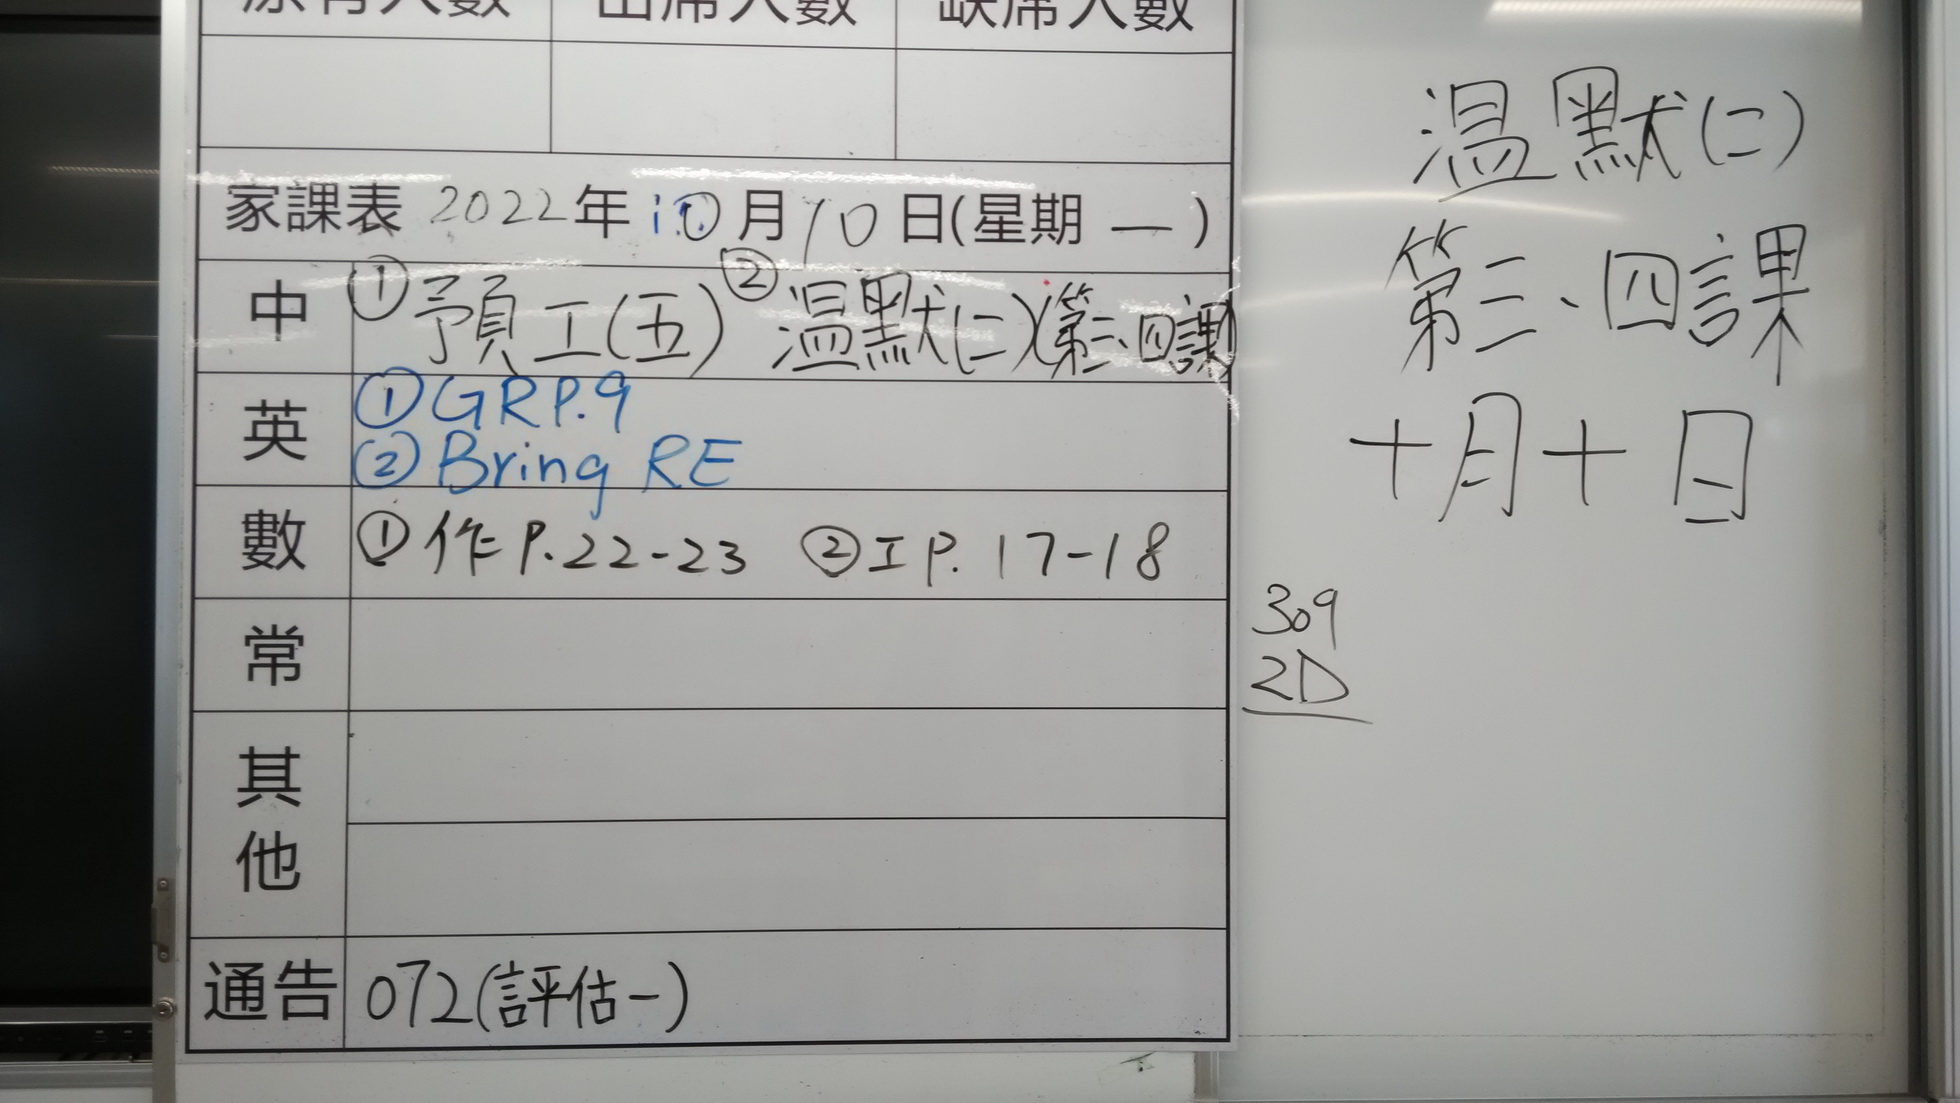 原有人數 出席人數 缺席人數
家課表 2022年10月10日(星期一)
中 ①預工(五) ②溫默(二)(第三、四課)
英 ①GRP.9
②Bring RE
數 ①作P.22-23 ②工P.17-18
常
其他
通告 072(評估一)
溫默(二)
第三、四課
十月十日
309
2D